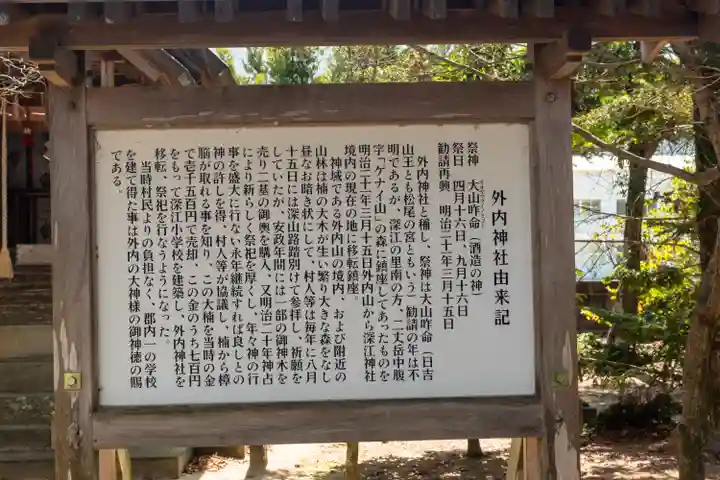 外内神社由来記
祭神　大山咋命（酒造の神）
祭日　四月十六日、九月十六日
勧請再興　明治二十一年三月十五日
外内神社と称し、祭神は大山咋命（日吉
山王とも松尾の宮ともいう）勧請の年は不
明であるが、深江の里南の方、二丈岳中腹
字「ケナイ山」の森に鎮座してあったものを
明治二十一年三月十五日外内山から深江神社
境内の現在の地に移転鎮座。
神域である外内山の境内、および附近の
山林は楠の大木が生い繁り大きな森をなし
昼なお暗き状にして、村人等は毎年に八月
十五日には深山路踏別けて参拝し、祈願を
していたが、安政年間には一部の御神木を
売り二基の御輿を購入、又明治二十年神占
により新らしく祭祀を厚くし、年々神の行
事を盛大に行ない永年継続すれば良しとの
神の許しを得、村人等が協議し、楠から樟
脳が取れる事を知り、この大楠を当時の金
で壱千五百円で売却、この金のうち七百円
をもって深江小学校を建築し、外内神社を
移転、祭祀を行なうようになった。
当時村民よりの負担なく、郡内一の学校
を建て得た事は外内の大神様の御神徳の賜
である。